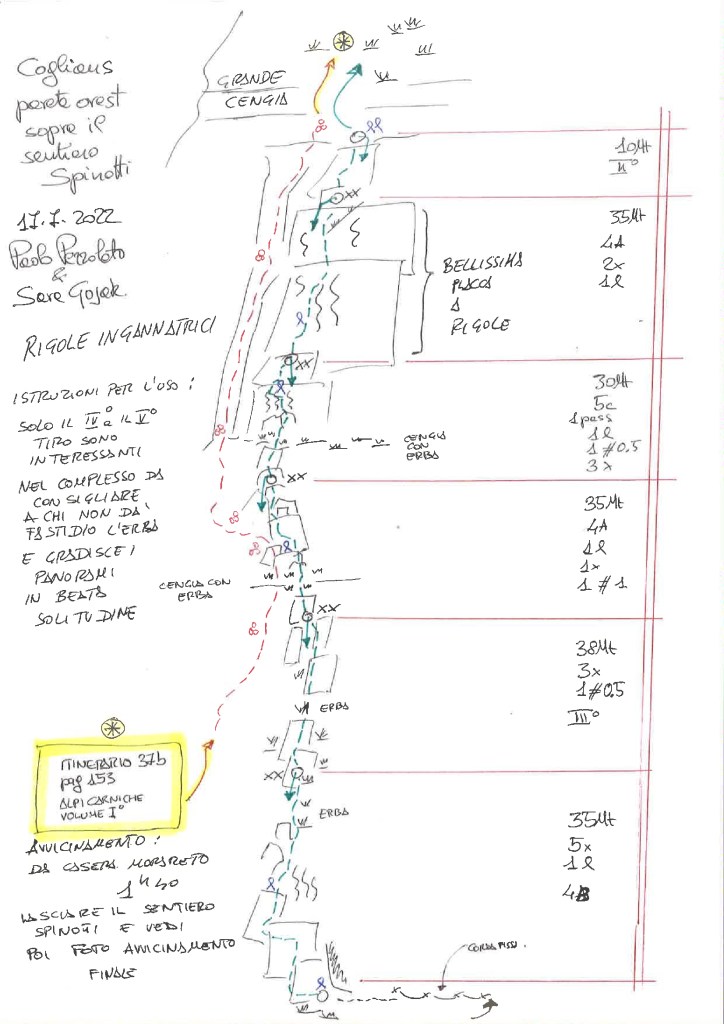 Coglians
parete ovest
sopra il
sentiero
Spinotti
17.7.2022
&
RIGOLE INGANNATRICI
ISTRUZIONI PER L'USO:
SOLO IL IV° e IL V°
TIRO SONO
INTERESSANTI
NEL COMPLESSO DA
CONSIGLIARE
A CHI NON DA'
FASTIDIO L'ERBA
E GRADISCE I
PANORAMI
IN BEATA
SOLITUDINE
ITINERARIO 37b
pag 153
ALPI CARNICHE
VOLUME I°
AVVICINAMENTO:
DA CASERA MORARETO
1h 40
LASCIARE IL SENTIERO
SPINOTTI E VEDI
POI FOTO AVVICINAMENTO
FINALE
GRANDE
CENGIA
XX
BELLISSIMA
PLACCA
A
RIGOLE
XX
CENGIA
CON
ERBA
XX
CENGIA CON
ERBA
XX
ERBA
XX
ERBA
CORDA FISSA.
10Mt
II°
35Mt
4A
2x
1l
30Mt
5c
1pass
1l
1#0.5
3x
35Mt
4A
1l
1x
1#1
38Mt
3x
1#0.5
III°
35Mt
5x
1l
4B